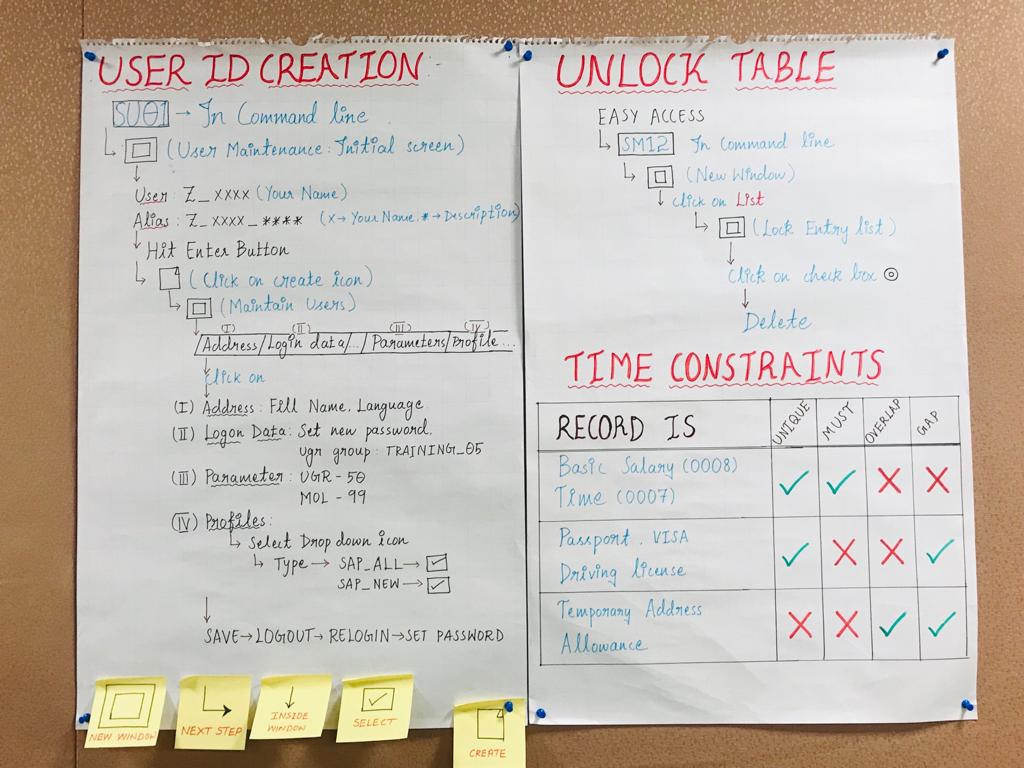 USER ID CREATION
SU01 → In Command line
(User Maintenance: Initial screen)
User: Z_xxxx (Your Name)
Alias: Z_xxxx_**** (x→ Your Name. *→ Description)
Hit Enter Button
(Click on create icon)
(Maintain Users)
(I) (II) (III) (IV)
/Address/Login data/.../Parameters/Profile...
Click on
(I) Address: Fill Name, Language
(II) Logon Data: Set new password.
Ugr group: TRAINING_05
(III) Parameter: UGR-50
MOL-99
(IV) Profiles:
Select Drop down icon
Type → SAP_ALL→
SAP_NEW→
SAVE→LOGOUT→RELOGIN→SET PASSWORD
NEW WINDOW
NEXT STEP
INSIDE
WINDOW
SELECT
CREATE
UNLOCK TABLE
EASY ACCESS
SM12 In Command line
(New Window)
click on List
(Lock Entry list)
Click on check box
Delete
TIME CONSTRAINTS
RECORD IS UNIQUE MUST OVERLAP GAP
Basic Salary (0008)
Time (0007) ✓ ✓ X X
Passport. VISA
Driving license ✓ X X ✓
Temporary Address
Allowance X X ✓ ✓